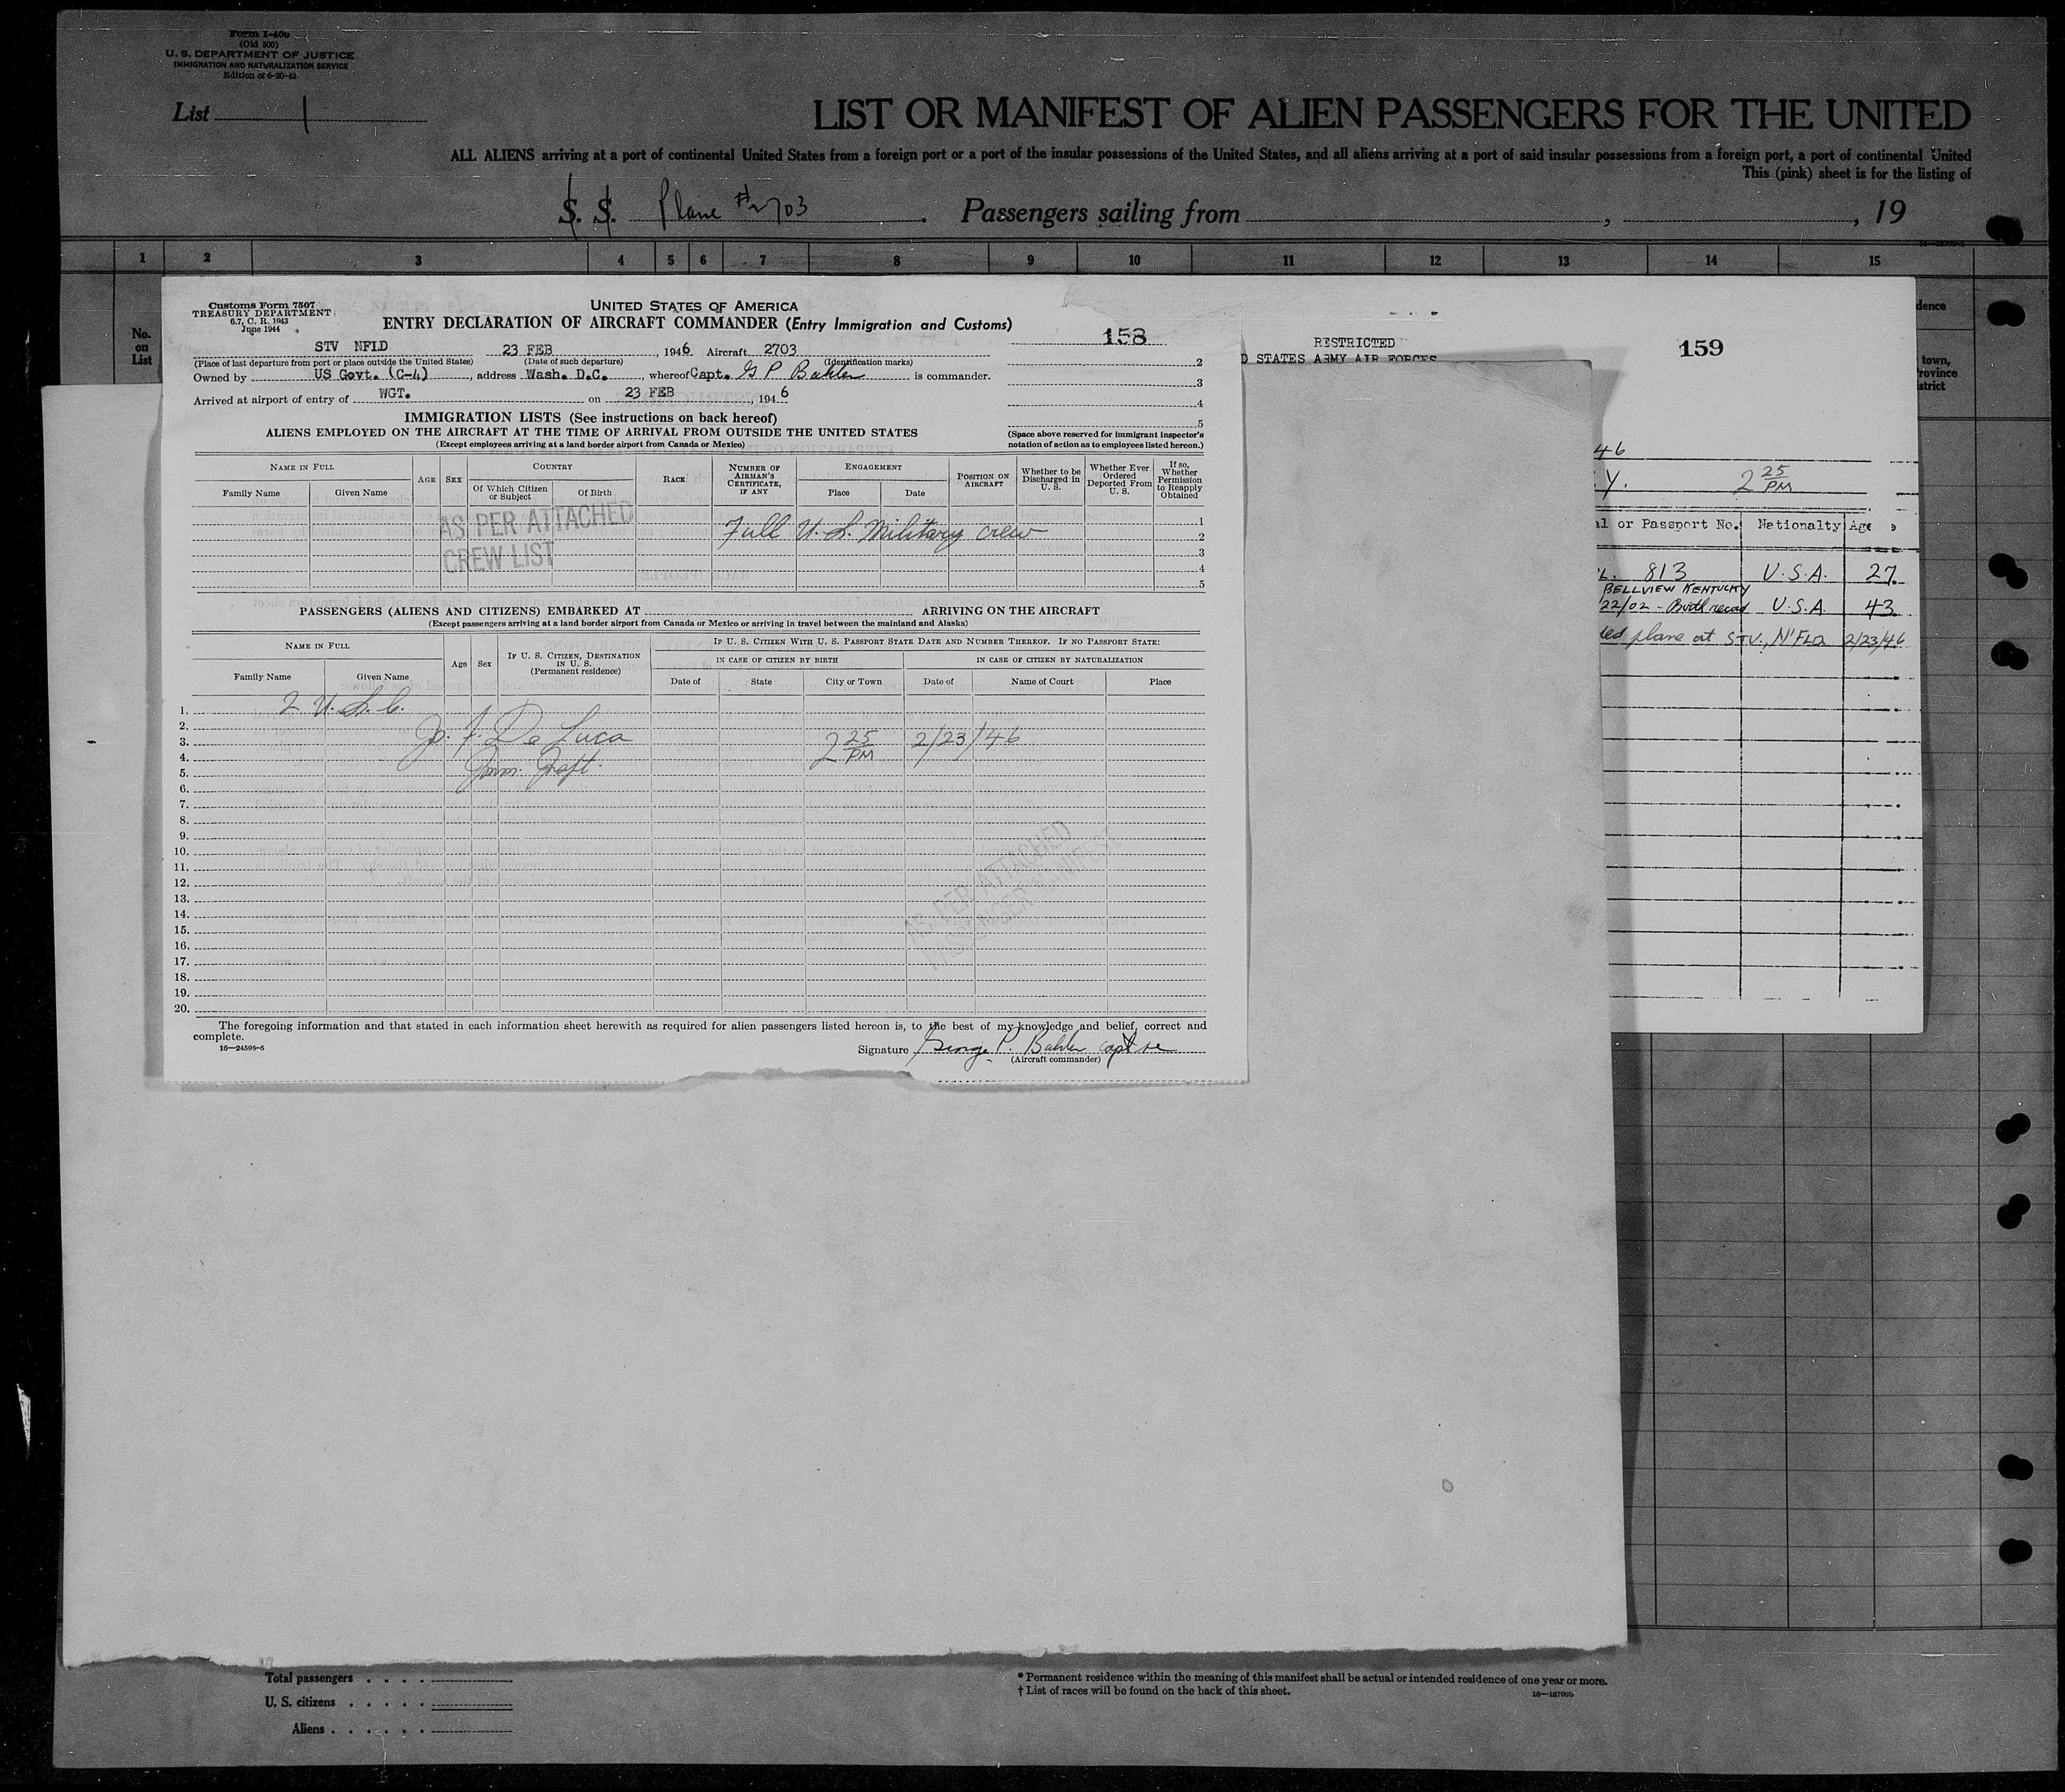 Form I-400
(Old 500)
U. S. DEPARTMENT OF JUSTICE
IMMIGRATION AND NATURALIZATION SERVICE
Edition of 6-20-42
List 1
LIST OR MANIFEST OF ALIEN PASSENGERS FOR THE UNITED
ALL ALIENS arriving at a port of continental United States from a foreign port or a port of the insular possessions of the United States, and all aliens arriving at a port of said insular possessions from a foreign port, a port of continental United
This (pink) sheet is for the listing of
S. S. Plane #2703. Passengers sailing from , , 19
1 2 3 4 5 6 7 8 9 10 11 12 13 14 15
No. on List
dence
town,
rovince
strict
Customs Form 7507
TREASURY DEPARTMENT
6.7, C. R. 1943
June 1944
UNITED STATES OF AMERICA
ENTRY DECLARATION OF AIRCRAFT COMMANDER (Entry Immigration and Customs)
158
STV NFLD 23 FEB, 1946 Aircraft 2703
(Place of last departure from port or place outside the United States) (Date of such departure) (Identification marks)
Owned by US Govt. (C-4), address Wash. D.C., whereof Capt. G P Bahler is commander.
Arrived at airport of entry of WGT. on 23 FEB, 1946
2
3
4
5
IMMIGRATION LISTS (See instructions on back hereof)
ALIENS EMPLOYED ON THE AIRCRAFT AT THE TIME OF ARRIVAL FROM OUTSIDE THE UNITED STATES
(Except employees arriving at a land border airport from Canada or Mexico)
(Space above reserved for immigrant inspector's
notation of action as to employees listed hereon.)
NAME IN FULL AGE SEX COUNTRY RACE NUMBER OF AIRMAN'S CERTIFICATE, IF ANY ENGAGEMENT POSITION ON AIRCRAFT Whether to be Discharged in U. S. Whether Ever Ordered Deported From U. S. If so, Whether Permission to Reapply Obtained
Family Name Given Name Of Which Citizen or Subject Of Birth Place Date
AS PER ATTACHED
CREW LIST
Full U. S. Military crew
1
2
3
4
5
PASSENGERS (ALIENS AND CITIZENS) EMBARKED AT ARRIVING ON THE AIRCRAFT
(Except passengers arriving at a land border airport from Canada or Mexico or arriving in travel between the mainland and Alaska)
NAME IN FULL Age Sex IF U. S. CITIZEN, DESTINATION IN U. S. (Permanent residence) IF U. S. CITIZEN WITH U. S. PASSPORT STATE DATE AND NUMBER THEREOF. IF NO PASSPORT STATE:
IN CASE OF CITIZEN BY BIRTH IN CASE OF CITIZEN BY NATURALIZATION
Family Name Given Name Date of State City or Town Date of Name of Court Place
1. 2 U. S. C.
2.
3. Jo. F. De Luca 2 25 PM 2/23/46
4.
5. Imm. Inspt.
6.
7.
8.
9.
10.
11.
12.
13.
14.
15.
16.
17.
18.
19.
20.
AS PER ATTACHED
PASSENGER MANIFEST
The foregoing information and that stated in each information sheet herewith as required for alien passengers listed hereon is, to the best of my knowledge and belief, correct and
complete.
16—24598-5
Signature George P. Bahler Capt
(Aircraft commander)
RESTRICTED
D STATES ARMY AIR FORCES
159
46
Y. 2 25 PM
al or Passport No. Nationality Age
L. 813 U.S.A. 27
BELLVIEW KENTUCKY
22/02 - Birth record U.S.A. 43
ded plane at STV., N'FLD 2/23/46
Total passengers
U. S. citizens
Aliens
* Permanent residence within the meaning of this manifest shall be actual or intended residence of one year or more.
† List of races will be found on the back of this sheet.
16—18709b